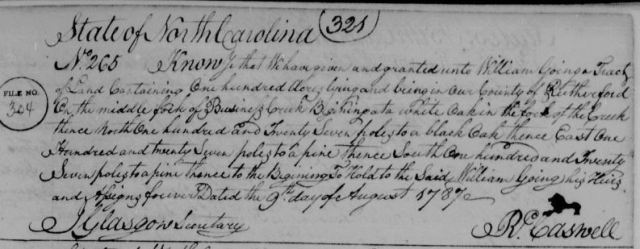 State of North Carolina (321)
No 265 Know Ye that We have given and granted unto William Going a Tract
of Land Containing One hundred Acres lying and being in Our County of Rutherford
On the middle fork of Business Creek Begining at a White Oak in the fork of the Creek
thence North One hundred and Twenty Seven poles to a black Oak thence East One
Hundred and twenty Seven poles to a pine thence South One hundred and Twenty
Seven poles to a pine thence to the Begining To Hold to the Said William Going his Heirs
and Assigns forever Dated the 9th day of August 1787
J Glasgow Secretary Rd Caswell
FILE NO.
304